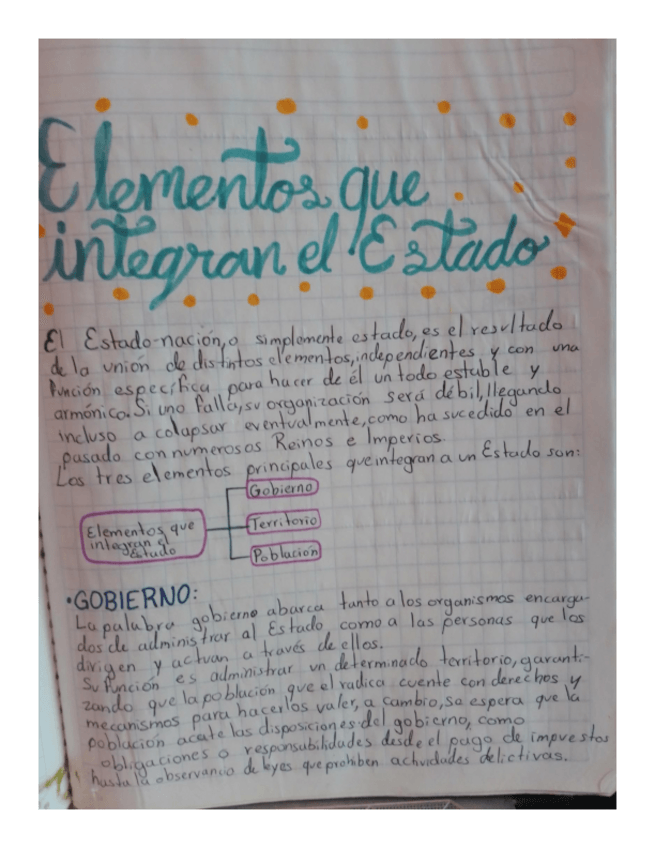 Elementos que
integran el Estado
El Estado-nación, o simplemente estado, es el resultado
de la unión de distintos elementos, independientes y con una
función específica para hacer de él un todo estable y
armónico. Si uno falla, su organización será débil, llegando
incluso a colapsar eventualmente, como ha sucedido en el
pasado con numerosos Reinos e Imperios.
Los tres elementos principales que integran a un Estado son:
Gobierno
Elementos que
integran el
Estado
Territorio
Población
•GOBIERNO:
La palabra gobierno abarca tanto a los organismos encarga-
dos de administrar al Estado como a las personas que los
dirigen y actuan a través de ellos.
Su función es administrar un determinado territorio, garanti-
zando que la población que el radica cuente con derechos y
mecanismos para hacerlos valer, a cambio, se espera que la
población acate las disposiciones del gobierno, como
obligaciones o responsabilidades desde el pago de impuestos
hasta la observancia de leyes que prohiben actividades delictivas.